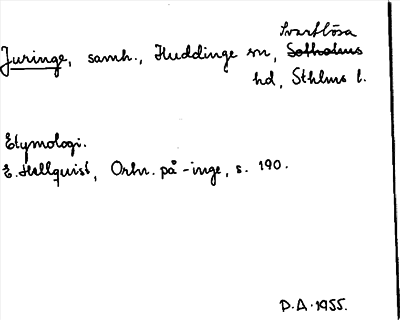 Svartlösa
Juringe, samh., Huddinge sn, Sotholms
hd, Sthlms l.
Etymologi.
E. Hellquist, Ortn. på -inge, s. 190.
D.A. 1955.